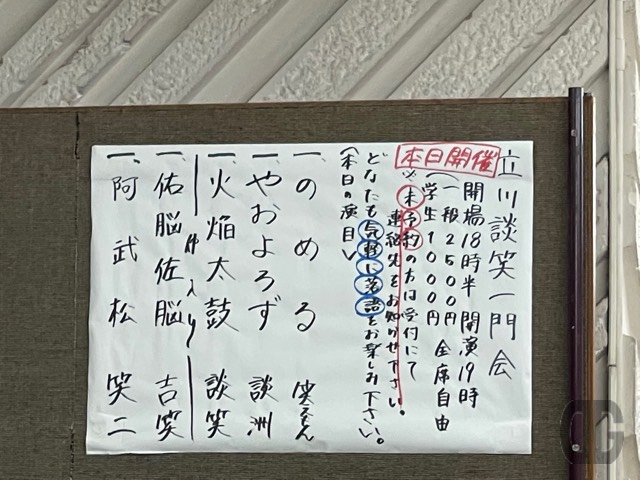 立川談笑一門会
本日開催
開場18時半 開演19時
(一般2500円 全席自由
学生1000円
※未予約の方は受付にて
連絡先をお知らせ下さい。
どなたも気軽に落語をお楽しみ下さい。
〈本日の演目〉
一、のめる 笑えもん
一、やおよろず 談洲
一、火焔太鼓 談笑
仲入り
一、佑脳佐脳 吉笑
一、阿武松 笑二